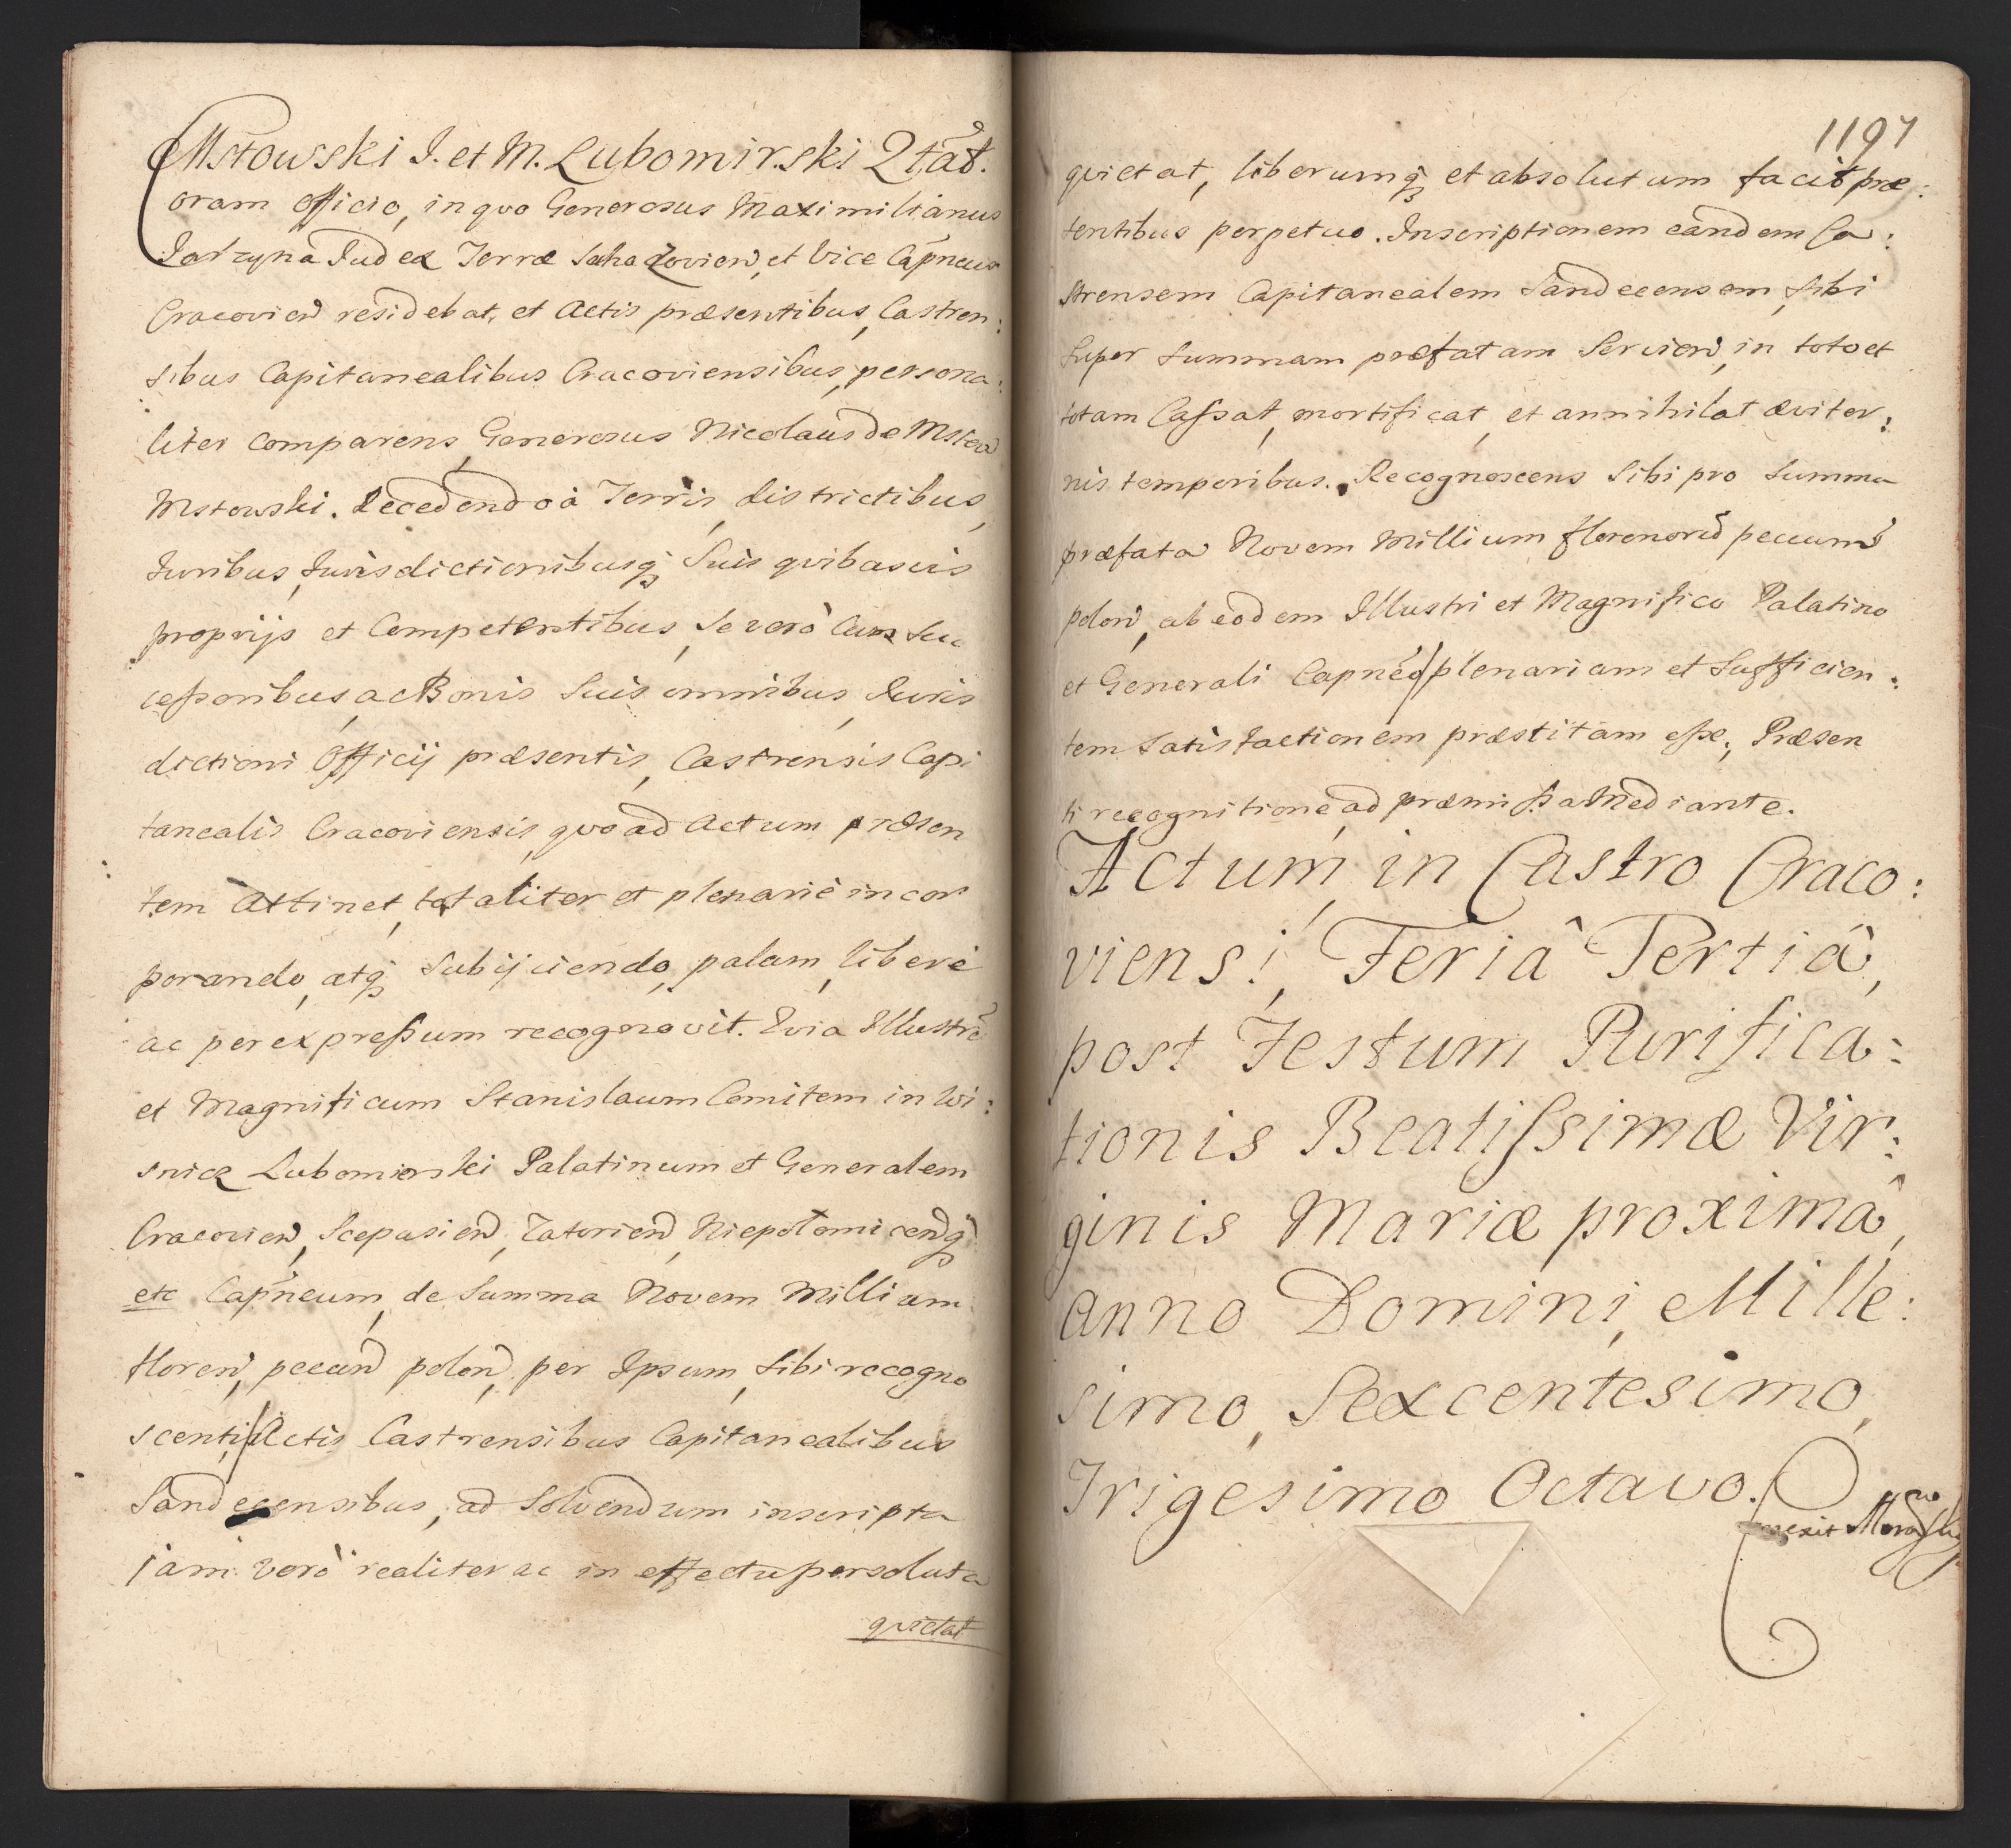 Mstowski I. et M. Lubomirski Qtat.
Coram Officio, in quo Generosus Maximilianus
Jarzyna Judex Terræ Sochaczovien, et Vice Capneus
Cracovien residebat, et Actis præsentibus, Castren:
sibus Capitanealibus Cracoviensibus, persona:
liter comparens, Generosus Nicolaus de Mstow
Mstowski. Recedendo à Terris, districtibus,
Juribus, Jurisdictionibusq; Suis quibasvis
proprijs et Competentibus, Se verò Cum Suc
cessoribus, ac Bonis Suis omnibus, Juris
dictioni Officij præsentis, Castrensis Capi
tanealis Cracoviensis, quo ad Actum præsen
tem Attinet, totaliter et plenarie incor
porando, atq; Subijciendo, palam, liberè
ac per expressum recognovit. Quia Illustrē
et Magnificum Stanislaum Comitem in Wi:
snicz Lubomirski Palatinum et Generalem
Cracovien, Scepusien, Zatorien, Niepolomicenq;
etc Capneum, de Summa Novem Millium
floren, pecun polon, per Ipsum, Sibi recogno
scenti, Actis Castrensibus Capitanealibus
Sandecensibus, ad Solvendum inscripta
jam verò realiter ac in effectu persoluta
quietat
1197
quietat, liberumq; et absolutum facit præ:
sentibus perpetuo. Inscriptionem eandem Ca:
strensem Capitanealem Sandecensem, Sibi
Super Summam præfatam Servien, in toto et
totam Cassat, mortificat, et annihilat æviter:
nis temporibus. Recognoscens Sibi pro Summa
præfata Novem Millium florenorū pecuniæ
polon, ab eodem Illustri et Magnifico Palatino
et Generali Capneo, plenariam et Sufficien:
tem Satisfactionem præstitam esse, Præsen
ti recognitione, ad præmissa Mediante.
Actum, in Castro Craco:
viensi, Feriâ Tertiâ,
post Festum Purifica:
tionis Beatissimæ Vir:
ginis Mariæ proximâ,
Anno Domini, Mille:
simo, Sexcentesimo,
Trigesimo Octavo.